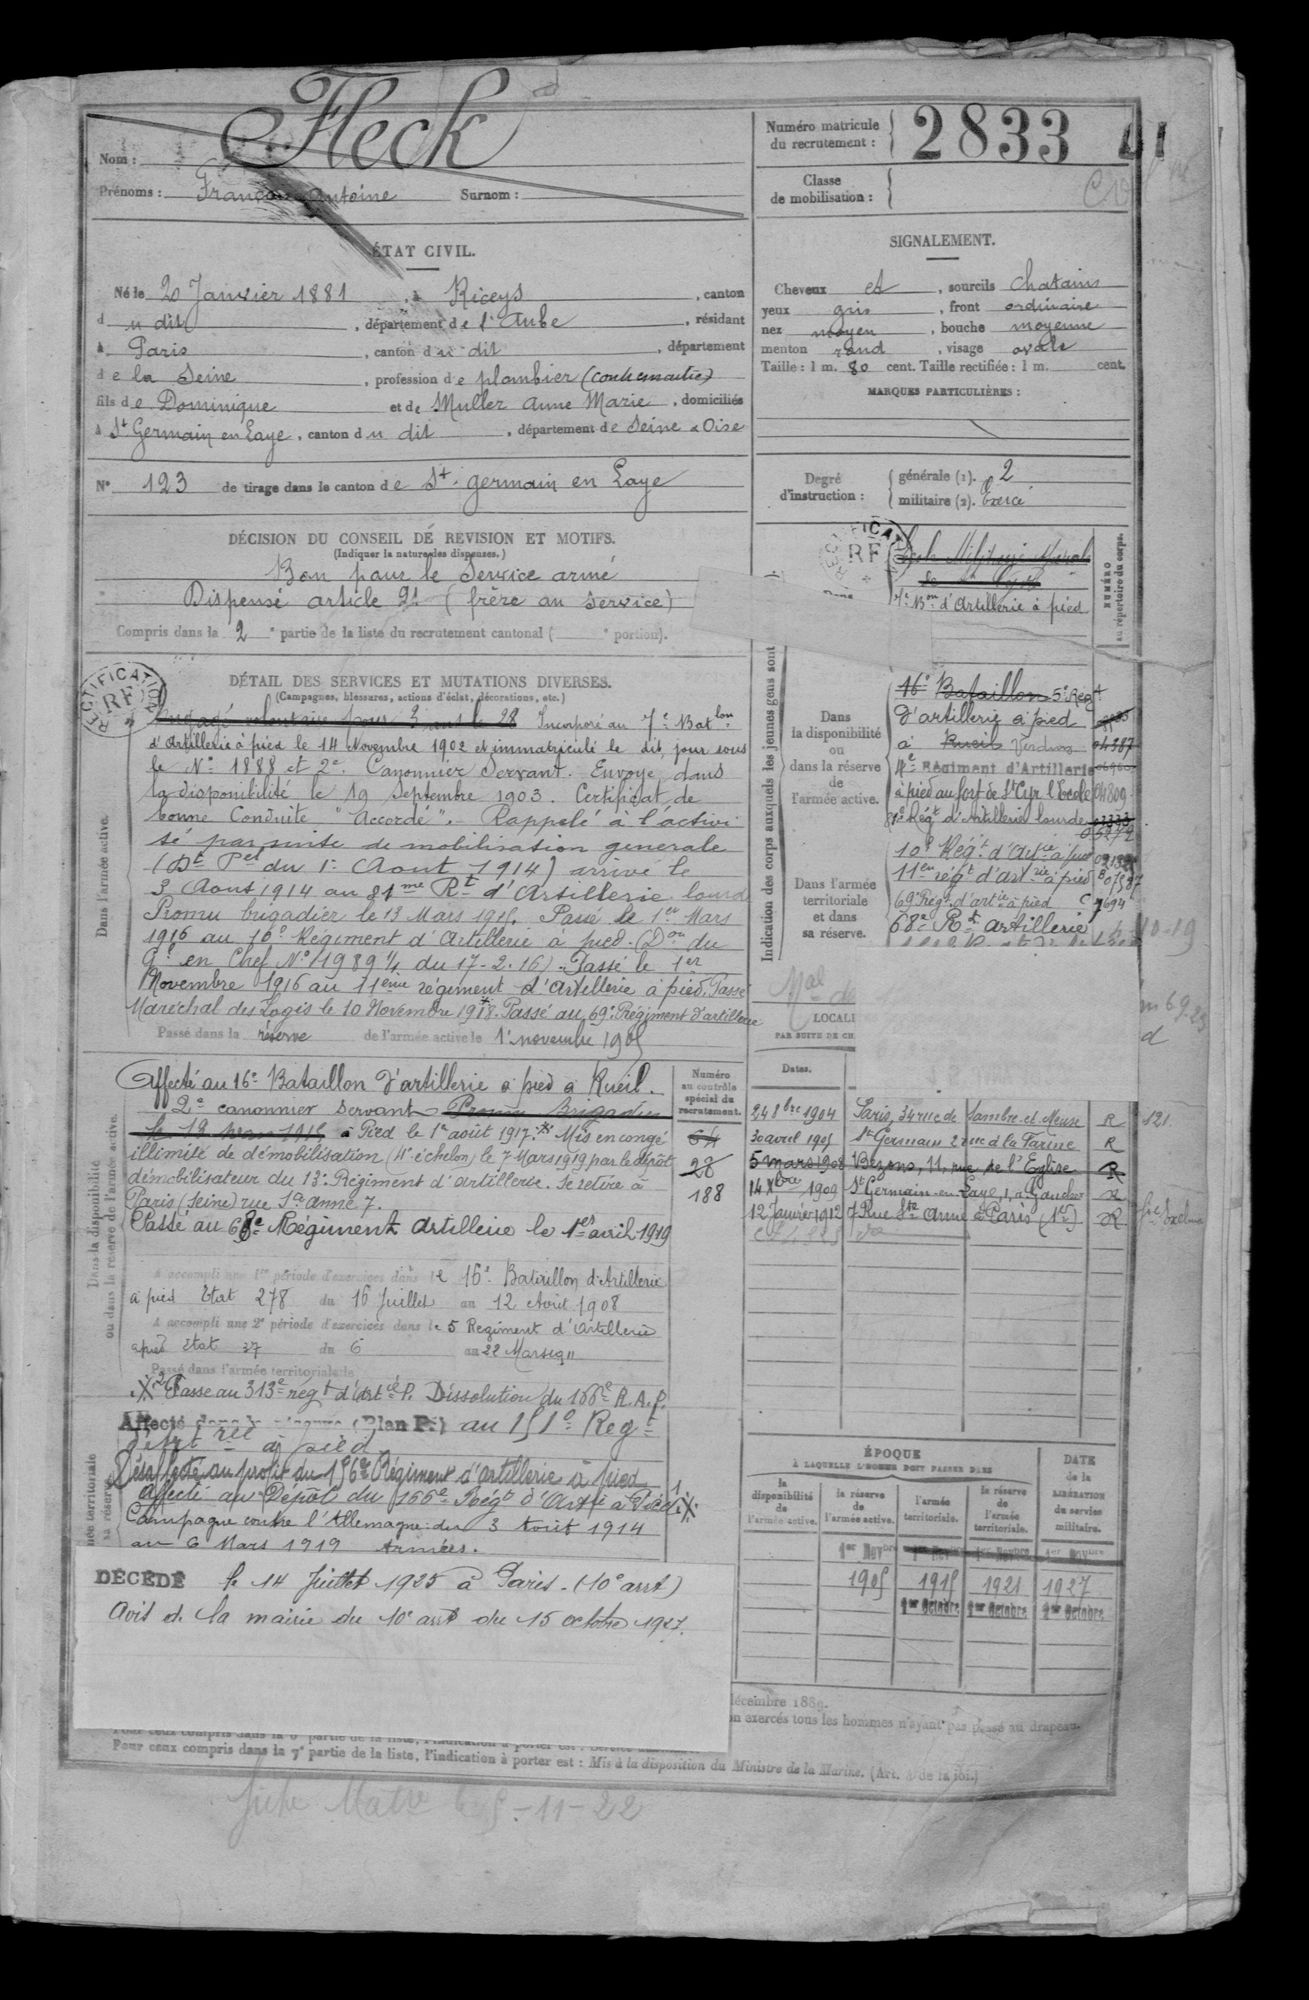 Nom : Fleck
Prénoms : François Antoine Surnom :
Numéro matricule du recrutement : 2833
Classe de mobilisation :
ÉTAT CIVIL.
Né le 20 Janvier 1881, à Riceys, canton
du dit, département de l'Aube, résidant
à Paris, canton du dit, département
de la Seine, profession de plombier (contremaitre)
fils de Dominique et de Muller Anne Marie, domiciliés
à St Germain en Laye, canton du dit, département de Seine & Oise
N° 123 de tirage dans le canton de St. germain en Laye
SIGNALEMENT.
Cheveux et, sourcils chatains
yeux gris, front ordinaire
nez moyen, bouche moyenne
menton rond, visage ovale
Taille : 1 m. 80 cent. Taille rectifiée : 1 m. cent.
MARQUES PARTICULIÈRES :
Degré d'instruction :
générale (1). 2
militaire (2). Exercé
DÉCISION DU CONSEIL DE REVISION ET MOTIFS.
(Indiquer la nature des dispenses.)
Bon pour le Service armé
Dispensé article 21 (frère au service)
Compris dans la 2e partie de la liste du recrutement cantonal ( e portion).
DÉTAIL DES SERVICES ET MUTATIONS DIVERSES.
(Campagnes, blessures, actions d'éclat, décorations, etc.)
RECTIFICATION RF
Dans l'armée active.
Engagé volontaire pour 3 ans le 28 Incorporé au 7e Batlon
d'Artillerie à pied le 14 Novembre 1902 et immatriculé le dit jour sous
le No 1888 et 2e Canonnier Servant. Envoyé dans
la disponibilité le 19 Septembre 1903. Certificat de
bonne Conduite "Accordé". Rappelé à l'activi
té par suite de mobilisation générale
(Dt Pel du 1er Aout 1914) arrivé le
3 Aout 1914 au 81me Rt d'Artillerie lourde
Promu brigadier le 13 Mars 1915. Passé le 1er Mars
1916 au 10e Régiment d'Artillerie à pied. (Don du
Gl en Chef No 11989 1/4 du 17-2-16). Passé le 1er
Novembre 1916 au 11eme régiment d'Artillerie à pied. Passé
Maréchal des Logis le 10 Novembre 1918. Passé au 69e Régiment d'artillerie
Passé dans la réserve de l'armée active le 1er novembre 1905
Dans la disponibilité ou dans la réserve de l'armée active.
Affecté au 16e Bataillon d'artillerie à pied à Rueil.
2e canonnier servant Promu Brigadier
le 13 mars 1915 à Pied le 1er août 1917. Mis en congé
illimité de démobilisation (4e échelon) le 7 Mars 1919 par le dépôt
démobilisateur du 13e Régiment d'artillerie. Se retire à
Paris (Seine) rue Ste anne 7.
Passé au 68e Régiment Artillerie le 1er avril 1919
A accompli une 1re période d'exercices dans le 16e Bataillon d'Artillerie
à pied Etat 278 du 16 Juillet au 12 Août 1908
A accompli une 2e période d'exercices dans le 5 Régiment d'Artillerie
à pied état 37 du 6 au 22 Mars 1911
Passé dans l'armée territoriale le
Passe au 313e régt d'Artie P. Dissolution du 166e R.A.P.
Affecté dans la réserve (Plan P.) au 151e Regt
d'Artrie à pied
Désaffecté au profit du 156e Régiment d'artillerie à pied
Affecté au Dépôt du 166e Régt d'Artie à Pied
Campagne contre l'Allemagne du 3 Août 1914
au 6 Mars 1919 Armées.
DÉCÉDÉ le 14 Juillet 1925 à Paris. (10e arrt)
Avis de la mairie du 10e arrt du 15 octobre 1927.
Numéro au contrôle spécial du recrutement.
64
28
188
Indication des corps auxquels les jeunes gens sont
NUMÉRO au répertoire du corps.
RECTIFICATION RF
7e Bon d'Artillerie à pied
Dans la disponibilité ou dans la réserve de l'armée active.
16e Bataillon 5e Regt
d'artillerie à pied
à Rueil Verdun 04387
4e Régiment d'Artillerie
à pied au fort de St Cyr l'Ecole 04809
Régt d'Artillerie lourde
Dans l'armée territoriale et dans sa réserve.
10e Régt d'Artie à pied
11eme régt d'Artrie à pied
69e Régt d'artie à pied
68e Rt artillerie
LOCALI
PAR SUITE DE CH
Dates.
24 8bre 1904 Paris, 34 rue de Sambre et Meuse R
30 avril 1905 St Germain 2 rue de la Farine R
5 mars 1908 Bezons, 11, rue de l'Eglise R
14 Xbre 1909 St Germain-en-Laye, 1, r. Gaucher R
12 Janvier 1912 7 Rue Ste Anne à Paris (1er) R
ÉPOQUE
À LAQUELLE L'HOMME DOIT PASSER DANS
la disponibilité de l'armée active.
la réserve de l'armée active.
l'armée territoriale.
la réserve de l'armée territoriale.
DATE de la LIBÉRATION du service militaire.
1er Novbre 1er Novbre 1er Novbre 1er Novbre
1905 1915 1921 1927
1er Octobre 1er Octobre 1er Octobre
décembre 1889.
on exercés tous les hommes n'ayant pas passé au drapeau.
Pour ceux compris dans la 7e partie de la liste, l'indication à porter est : Mis à la disposition du Ministre de la Marine. (Art. 4 de la loi.)
Fiche Matle le 5-11-22